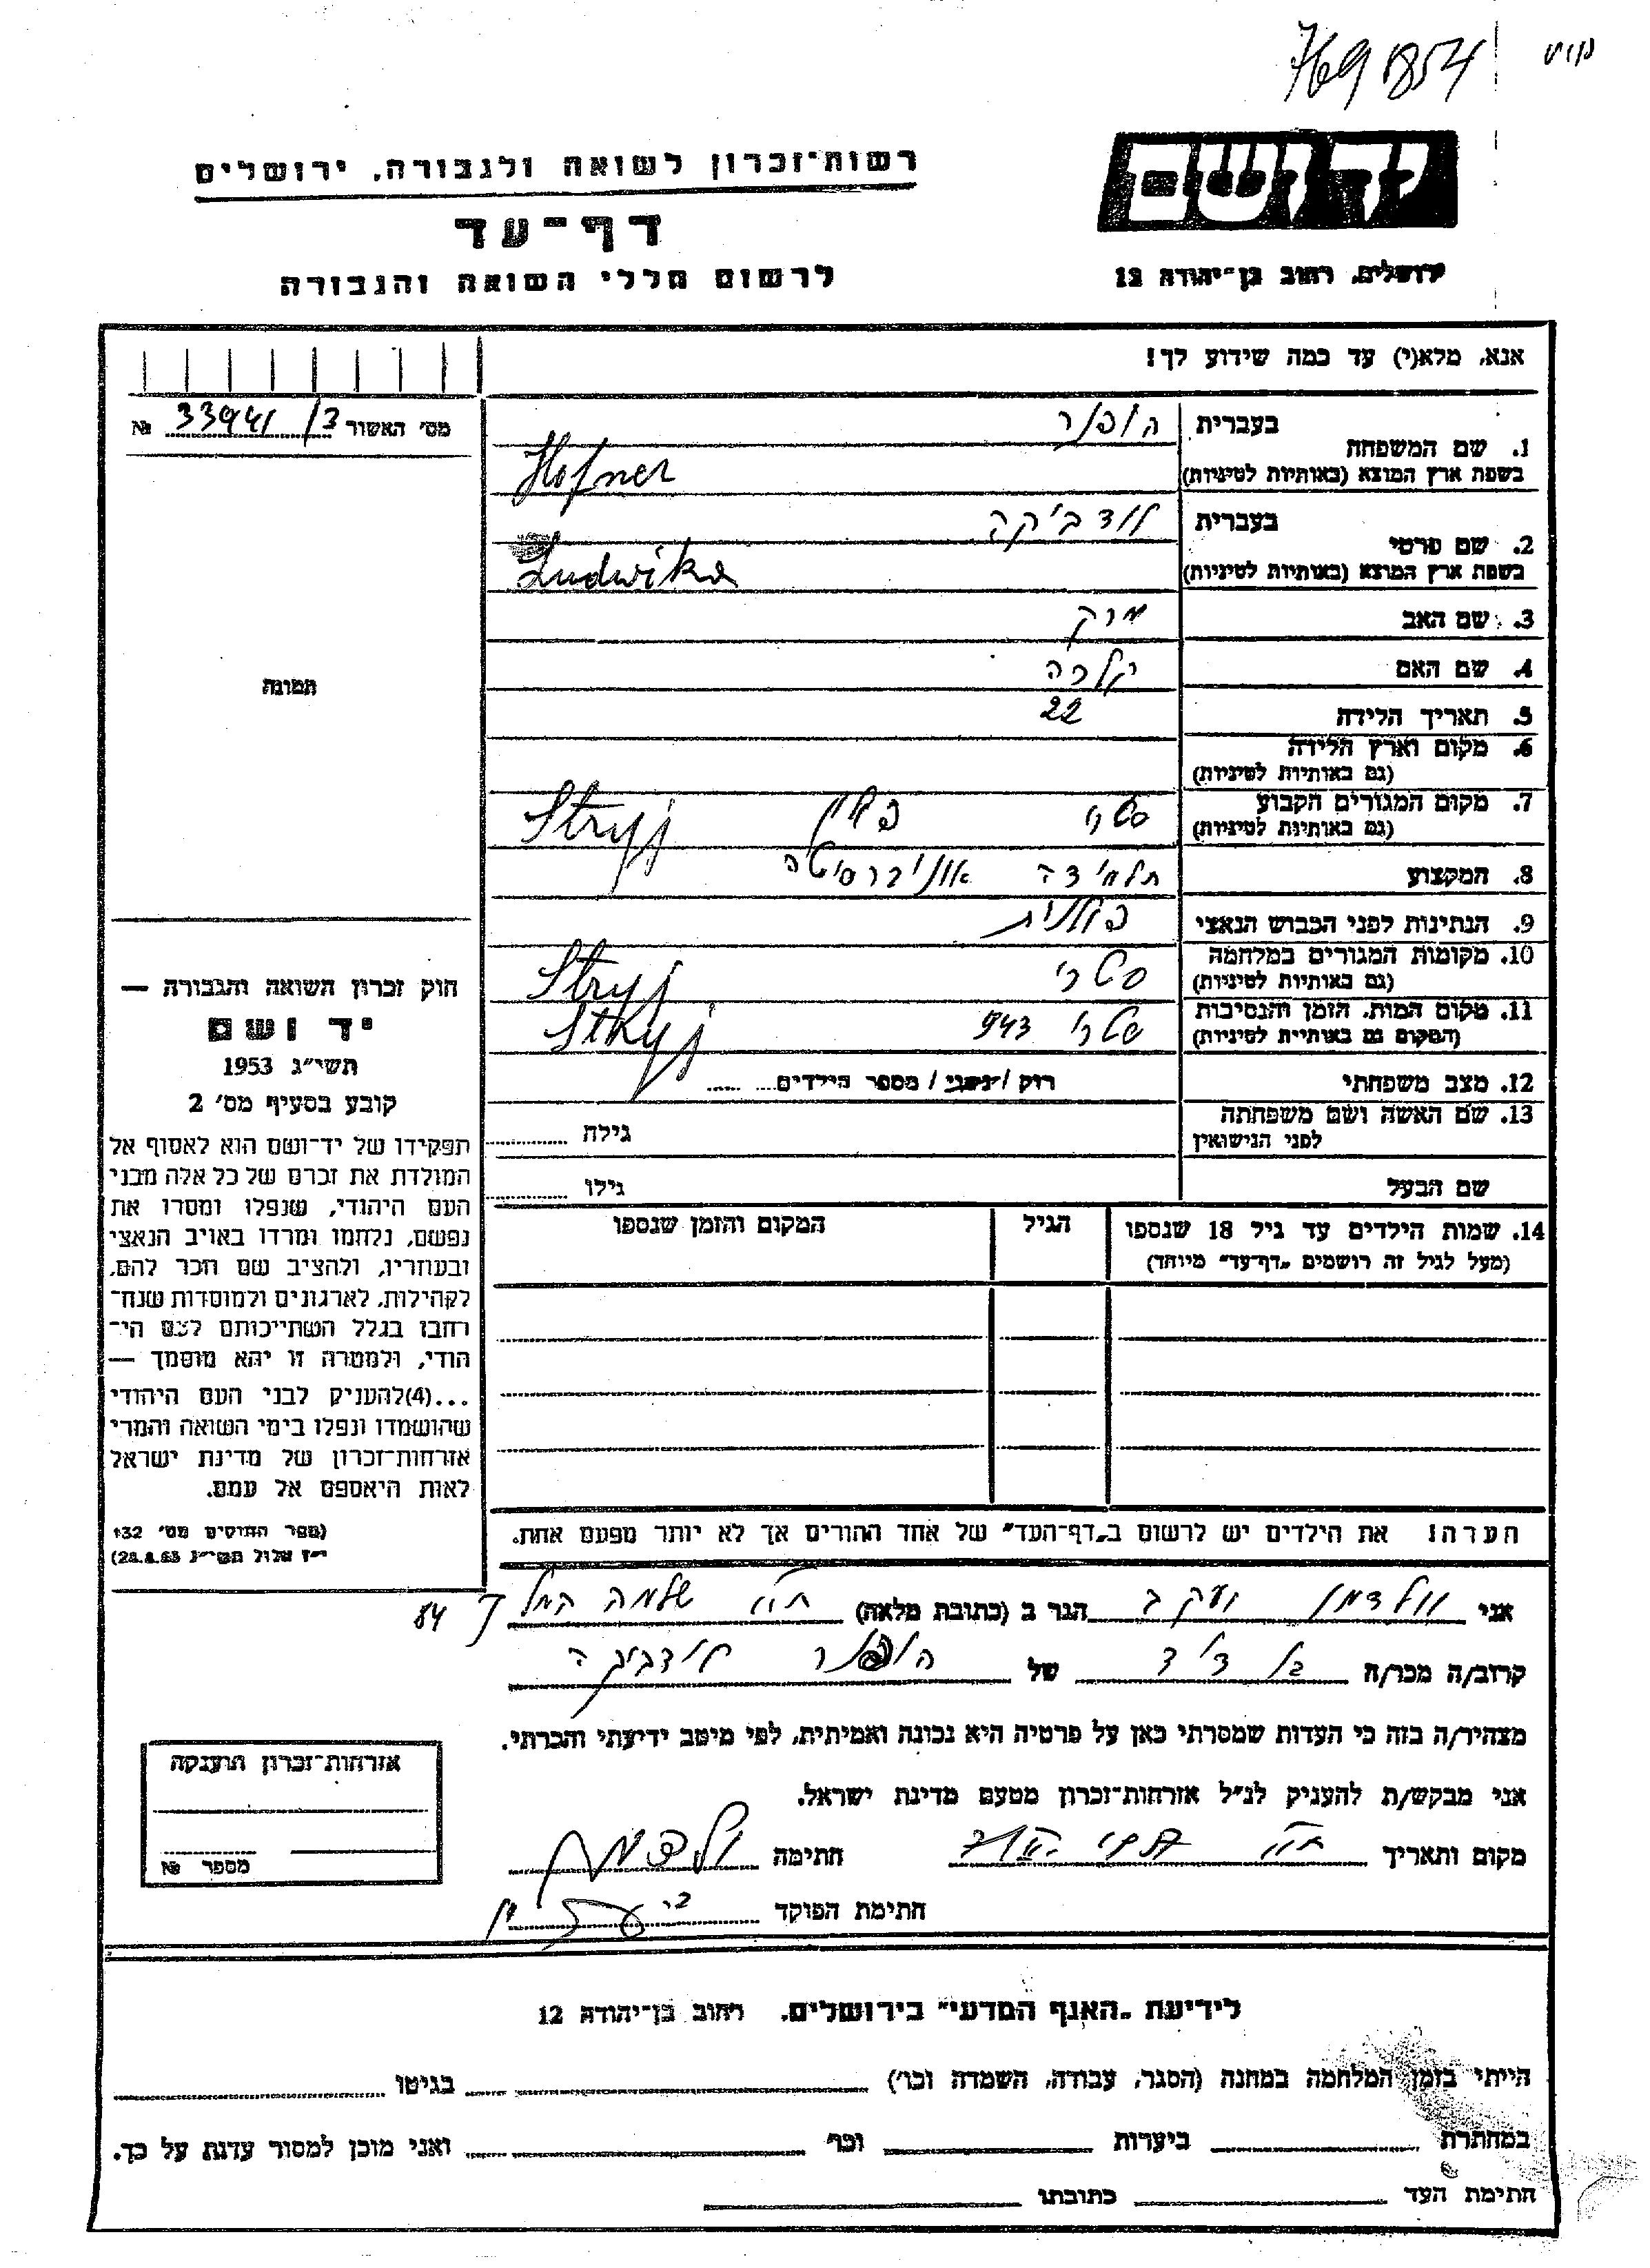 769854
רשות־זכרון לשואה ולגבורה, ירושלים
יד ושם
דף־עד
לרשום חללי השואה והגבורה
ירושלים, רחוב בן־יהודה 12
אנא, מלא(י) עד כמה שידוע לך!
מס' האשור 33941/3 №
1. שם המשפחה בעברית הופנר
בשפת ארץ המוצא (באותיות לטיניות) Hofner
2. שם פרטי בעברית לודביקה
בשפת ארץ המוצא (באותיות לטיניות) Ludwika
3. שם האב מרק
4. שם האם קלרה
5. תאריך הלידה 22
6. מקום וארץ הלידה
(גם באותיות לטיניות)
7. מקום המגורים הקבוע סטרי פולין Stryj
(גם באותיות לטיניות)
8. המקצוע תלמידה אוניברסיטה
9. הנתינות לפני הכבוש הנאצי פולנית
10. מקומות המגורים במלחמה סטרי Stryj
(גם באותיות לטיניות)
11. מקום המות, הזמן והנסיבות סטרי 943 Stryj
(המקום גם באותיות לטיניות)
12. מצב משפחתי רוק / נשוי / מספר הילדים
13. שם האשה ושם משפחתה
לפני הנישואין גילה
שם הבעל גילו
14. שמות הילדים עד גיל 18 שנספו הגיל המקום והזמן שנספו
(מעל לגיל זה רושמים "דף־עד" מיוחד)
תמונה
חוק זכרון השואה והגבורה —
יד ושם
תשי"ג 1953
קובע בסעיף מס' 2
תפקידו של יד־ושם הוא לאסוף אל
המולדת את זכרם של כל אלה מבני
העם היהודי, שנפלו ומסרו את
נפשם, נלחמו ומרדו באויב הנאצי
ובעוזריו, ולהציב שם וזכר להם,
לקהילות, לארגונים ולמוסדות שנח־
רבו בגלל השתייכותם לעם הי־
הודי, ולמטרה זו יהא מוסמך —
...(4) להעניק לבני העם היהודי
שהושמדו ונפלו בימי השואה והמרי
אזרחות־זכרון של מדינת ישראל
לאות היאספם אל עמם.
(ספר החוקים מס' 132
י"ז אלול תשי"ג 28.8.53)
הערה! את הילדים יש לרשום ב"דף־העד" של אחד ההורים אך לא יותר מפעם אחת.
אני ולדמן יעקב הגר ב (כתובת מלאה) שלמה המלך 84
קרוב/ה מכר/ה בן דוד של הופנר לודביקה
מצהיר/ה בזה כי העדות שמסרתי כאן על פרטיה היא נכונה ואמיתית, לפי מיטב ידיעתי והכרתי.
אני מבקש/ת להעניק לנ"ל אזרחות־זכרון מטעם מדינת ישראל.
מקום ותאריך חתימה ולדמן
חתימת הפוקד
אזרחות־זכרון הוענקה
מספר №
לידיעת "האגף המדעי" בירושלים, רחוב בן־יהודה 12
הייתי בזמן המלחמה במחנה (הסגר, עבודה, השמדה וכו') בגיטו
במחתרת ביערות וכו' ואני מוכן למסור עדות על כך.
חתימת העד כתובתו